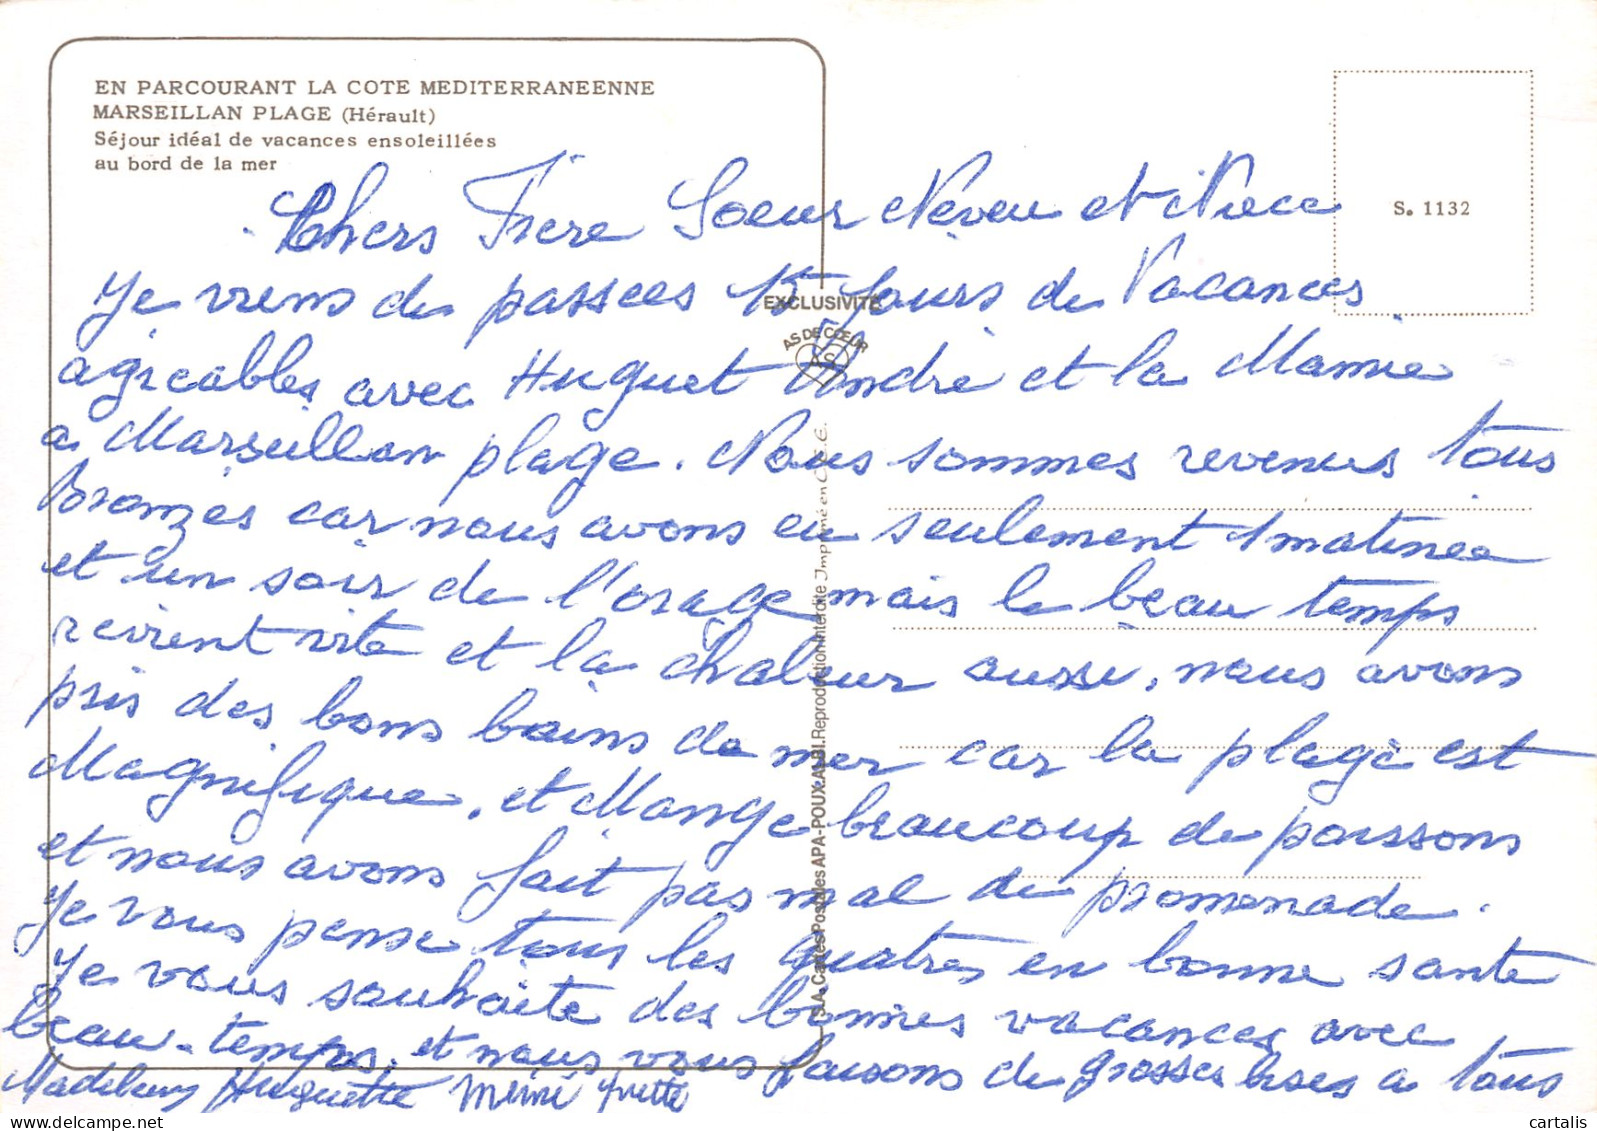 EN PARCOURANT LA COTE MEDITERRANEENNE
MARSEILLAN PLAGE (Hérault)
Séjour idéal de vacances ensoleillées
au bord de la mer
S. 1132
EXCLUSIVITÉ
AS DE CŒUR
S.A. Cartes Postales APA-POUX. ALBI. Reproduction Interdite Imprimé en C.E.E.
Chers Frere Soeur Neveu et Niece
Je viens de passees 15 Jours de Vacances
agreables avec Huguet André et la Mamie
a Marseillan plage. Nous sommes revenus tous
Bronzés car nous avons eu seulement 1 matinee
et un soir de l'orage mais le beau temps
revient vite et la chaleur aussi, nous avons
pris des bons bains de mer car la plage est
Magnifique, et Mange beaucoup de poissons
et nous avons fait pas mal de promenade.
Je vous pense tous les quatres en bonne sante
Je vous souhaite des bonnes vacances avec
beau-temps. et nous vous faisons de grosses bises a tous
Huguette Mémé Yvette
cartalis